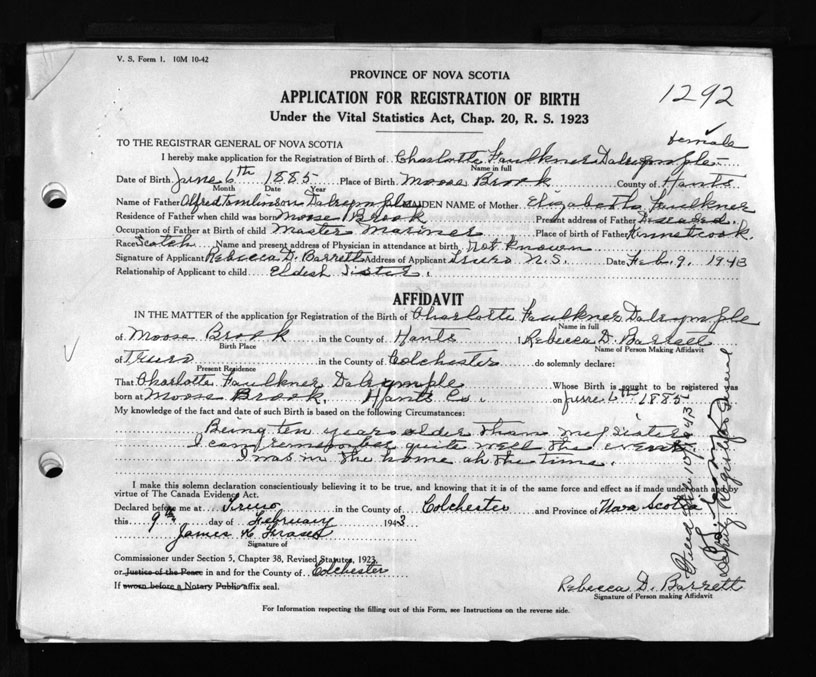 V. S. Form 1. 10M 10-42
PROVINCE OF NOVA SCOTIA
1292
APPLICATION FOR REGISTRATION OF BIRTH
Under the Vital Statistics Act, Chap. 20, R. S. 1923
TO THE REGISTRAR GENERAL OF NOVA SCOTIA
female
I hereby make application for the Registration of Birth of Charlotte Faulkner Dalrymple
Name in full
Date of Birth June 6th 1885 Place of Birth Moose Brook County of Hants
Month Date Year
Name of Father Alfred Tomlinson Dalrymple MAIDEN NAME of Mother Elizabeth Faulkner
Residence of Father when child was born Moose Brook Present address of Father Deceased.
Occupation of Father at Birth of child Master Mariner Place of birth of Father Kennetcook.
Race Scotch Name and present address of Physician in attendance at birth Not known
Signature of Applicant Rebecca D. Barrett Address of Applicant Truro N.S. Date Feb. 9, 1943
Relationship of Applicant to child Eldest Sister.
AFFIDAVIT
IN THE MATTER of the application for Registration of the Birth of Charlotte Faulkner Dalrymple
Name in full
of Moose Brook in the County of Hants, Rebecca D. Barrett
Birth Place Name of Person Making Affidavit
of Truro in the County of Colchester do solemnly declare:
Present Residence
That Charlotte Faulkner Dalrymple Whose Birth is sought to be registered was
born at Moose Brook, Hants Co. on June 6th 1885
My knowledge of the fact and date of such Birth is based on the following Circumstances:
Being ten years older than my sister
I can remember quite well the event
I was in the home at the time.
I make this solemn declaration conscientiously believing it to be true, and knowing that it is of the same force and effect as if made under oath and by
virtue of The Canada Evidence Act.
Declared before me at Truro in the County of Colchester and Province of Nova Scotia
this 9th day of February 1943
James H. Fraser
Signature of
Commissioner under Section 5, Chapter 38, Revised Statutes, 1923,
or Justice of the Peace in and for the County of Colchester
If sworn before a Notary Public affix seal.
Rebecca D. Barrett
Signature of Person making Affidavit
For Information respecting the filling out of this Form, see Instructions on the reverse side.
Filed 1943
Deputy Registrar General